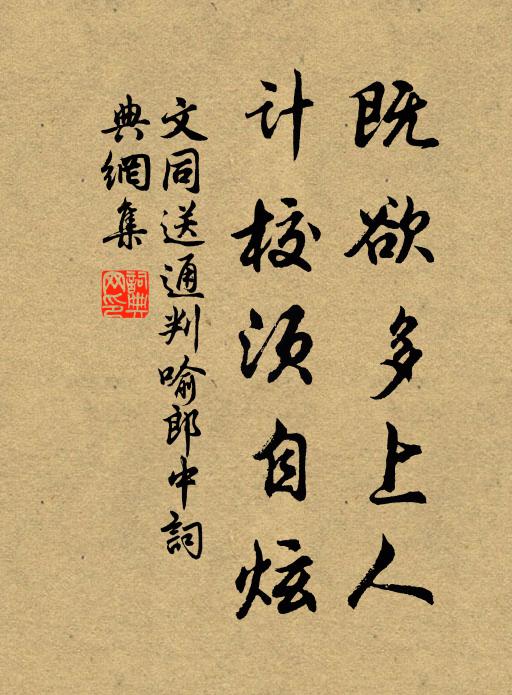 既欲多上人
计校须自炫
文同送通判喻郎中词
典網集
詞典
网印